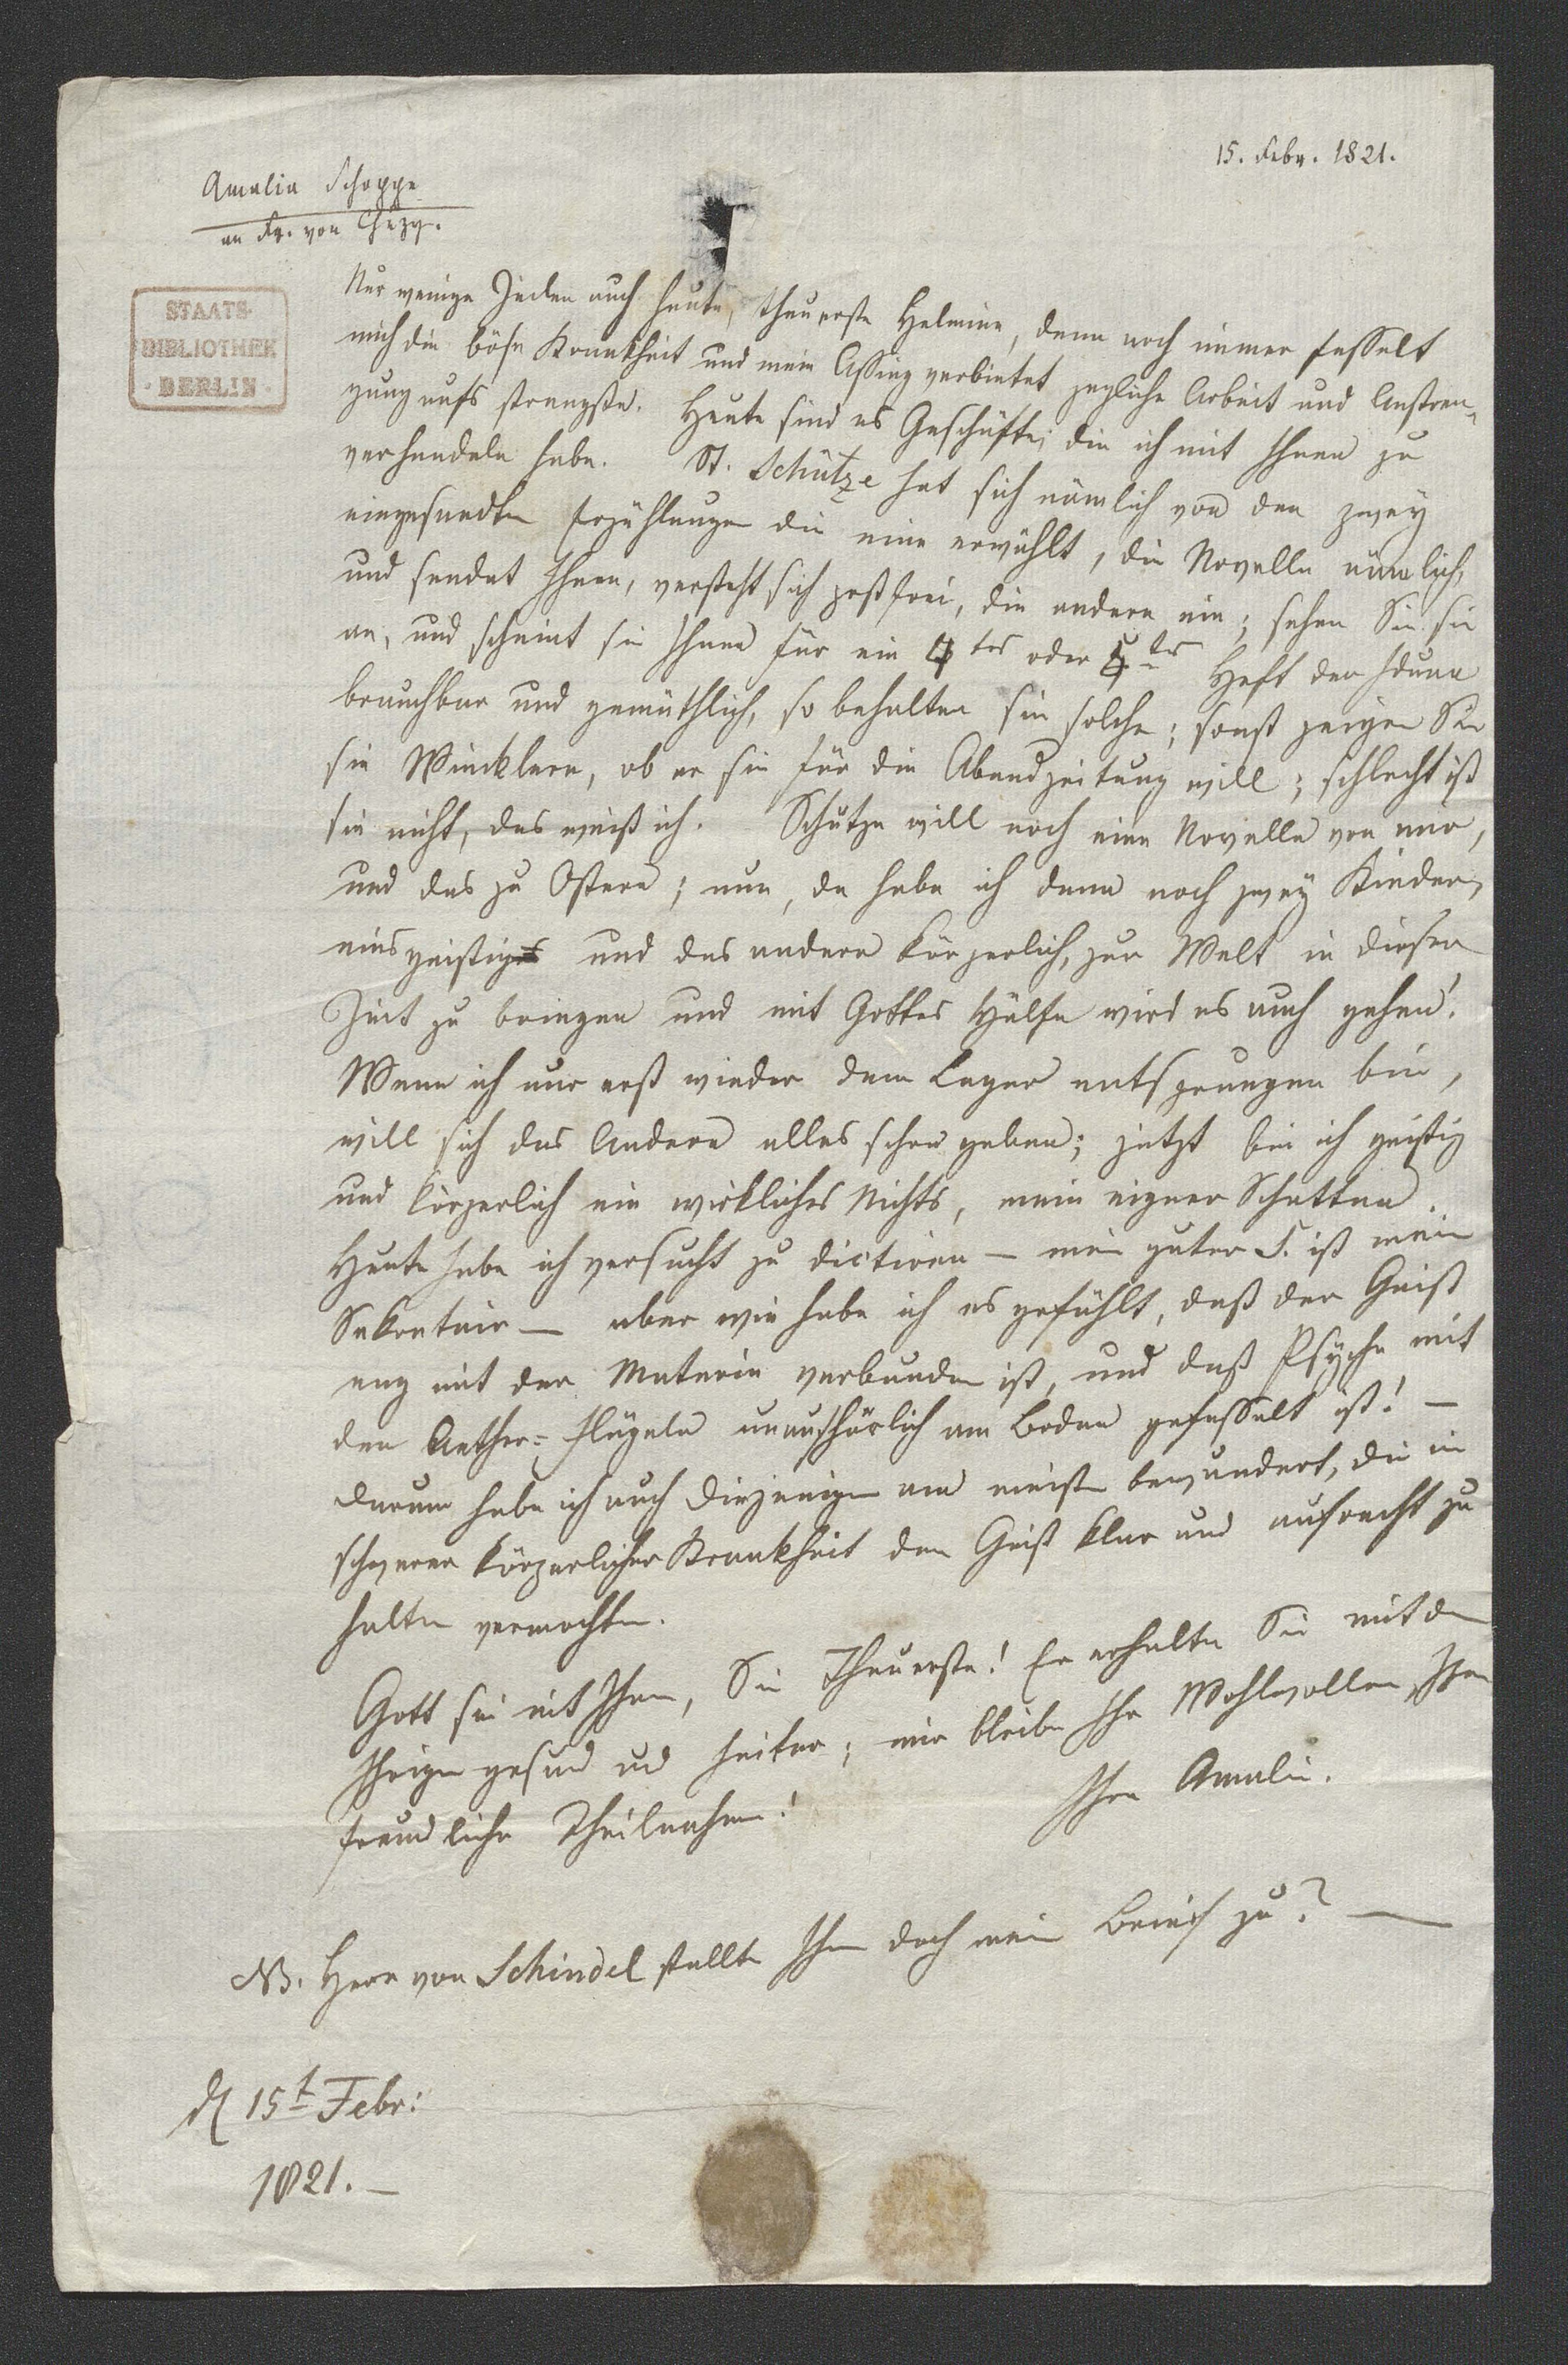 15. Febr. 1821.
Amalia Schoppe
an Fr. von Chézy.
STAATS-
BIBLIOTHEK
· BERLIN ·
Nur wenige Zeilen auch heute, theuerste Helmine, denn noch immer fesselt
mich die böse Krankheit und mein Assing verbietet jegliche Arbeit und Anstren-
gung aufs strengste. Heute sind es Geschäfte, die ich mit Ihnen zu
verhandeln habe. St. Schütze hat sich nämlich von den zwey
eingesandten Erzählungen die eine erwählt, die Novelle nämlich,
und sendet Ihnen, versteht sich postfrei, die andere ein; sehen Sie sie
an, und scheint sie Ihnen für ein 4tes oder 5tes Heft der Iduna
brauchbar und gemüthlich, so behalten sie solche; sonst zeigen Sie
sie Wincklern, ob er sie für die Abendzeitung will; schlecht ist
sie nicht, das weiß ich. Schütze will noch eine Novelle von mir,
und das zu Ostern; nun, da habe ich denn noch zwey Kinder,
eins geistig und das andere körperlich, zur Welt in dieser
Zeit zu bringen und mit Gottes Hülfe wird es auch gehen!
Wenn ich nur erst wieder dem Lager entsprungen bin,
will sich das Andere alles schon geben; jetzt bin ich geistig
und körperlich ein wirkliches Nichts, mein eigner Schatten.
Heute habe ich versucht zu dictiren — mein guter S. ist mein
Sekretair — aber wie habe ich es gefühlt, daß der Geist
eng mit der Materie verbunden ist, und daß Psyche mit
den Aether-Flügeln unaufhörlich am Boden gefesselt ist! —
Darum habe ich auch diejenigen am meisten bewundert, die in
schwerer körperlicher Krankheit den Geist klar und aufrecht zu
halten vermochten.
Gott sei mit Ihnen, Sie Theuerste! Er erhalte Sie mit den
Ihrigen gesund und heiter; mir bleibe Ihr Wohlwollen, Ihre
freundliche Theilnahme!
Ihre Amalie.
NB. Herr von Schindel stellte Ihnen doch mein Brief zu? —
d 15t Febr:
1821. —